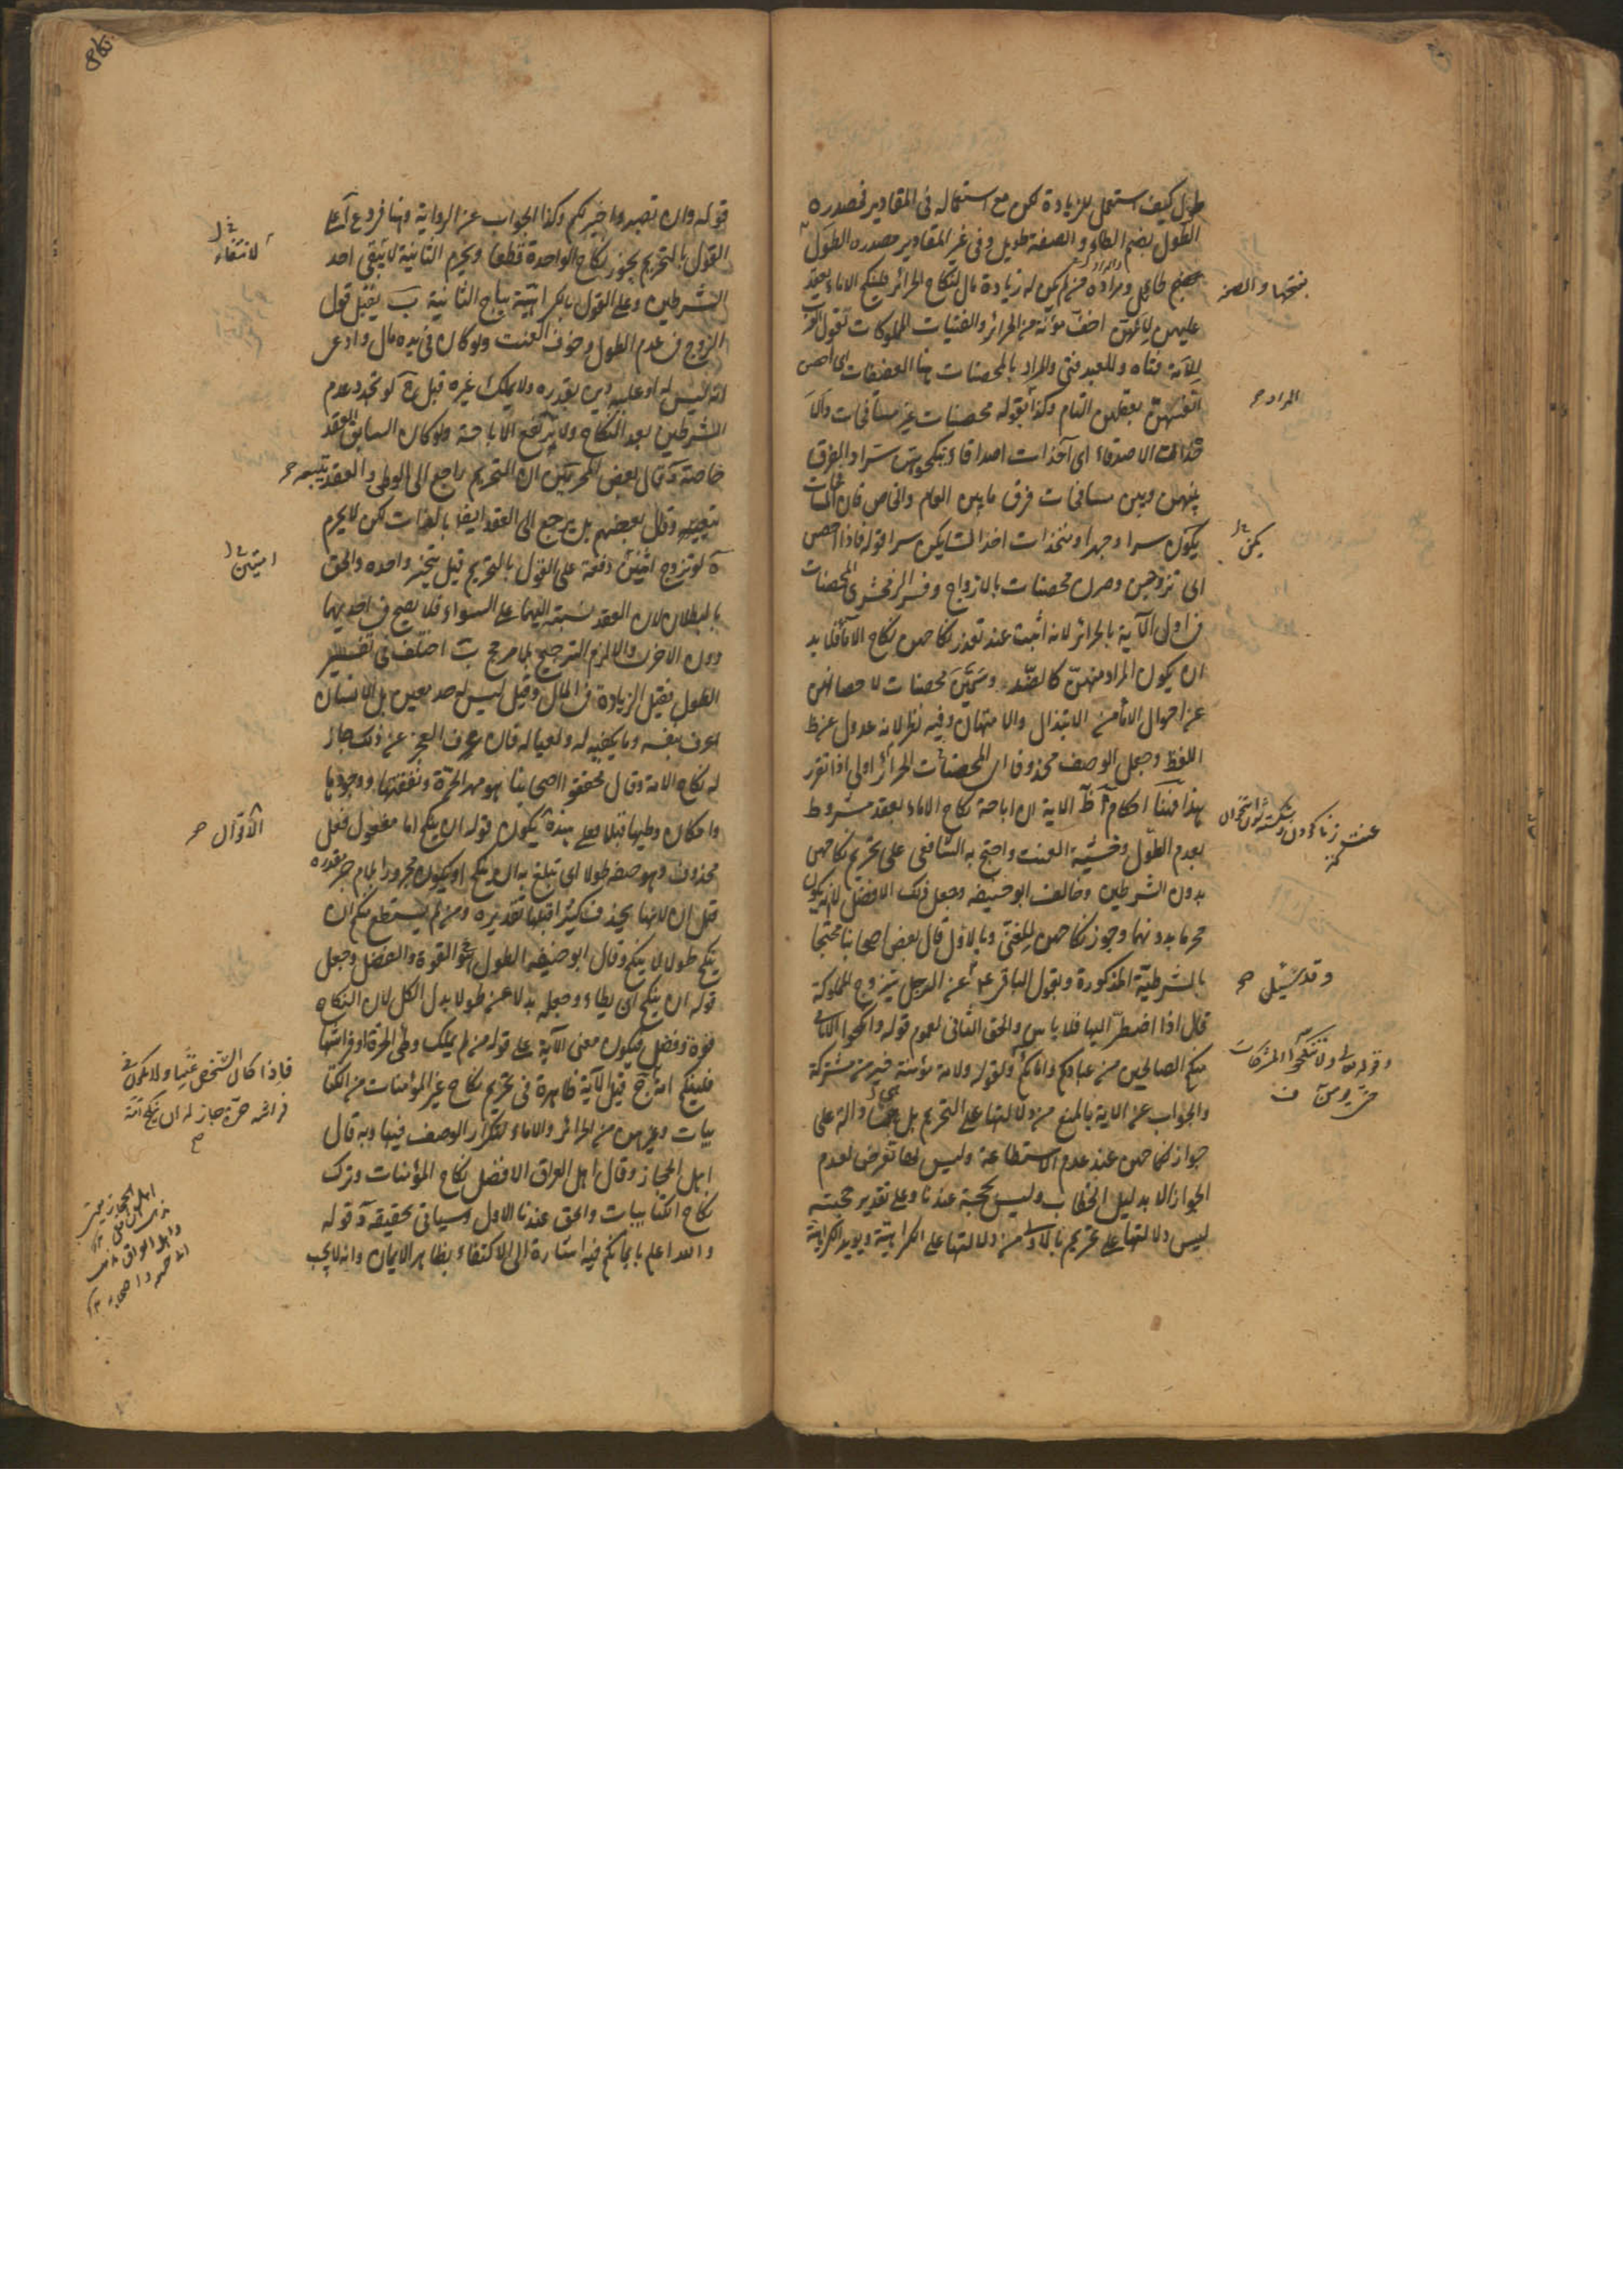 طول كيف استعمل للزيادة لكن مع استعماله فى المقادير فمصدره
الطول بضم الطاء والصفة طويل وفى غير المقادير مصدره الطول
بفتحها والصفة
طايل ومراده من لم يكن له زيادة مال لنكاح الحرائر فلينكح الاماء يعقد
عليهن لانهن اخف مؤنة من الحرائر والفتيات المملوكات تقول العرب
للامة فتاة وللعبد فتى والمراد بالمحصنات هنا العفيفات اى احصن
المراد
انفسهن بعقلهن التام وكذا بقوله محصنات غير مسافحات ولا
الاصدقاء اى آخذات اصدقاء ينكحونهن سرا والفرق
بينهن وبين مسافحات فرق ما بين العام والخاص فان
يكون سرا وجهرا ومتخذات اخدان يكن سرا قوله فاذا احصن
يكن
اى تزوجن وصرن محصنات بالازواج وفسر الزمخشرى المحصنات
فى اولى الآية بالحرائر لانه اثبت عند تعذر نكاحهن نكاح الاماء فلابد
ان يكون المراد منهن كالضد وسمين محصنات لاحصانهن
عن احوال الاماء من الابتذال والامتهان وفيه نظر لانه عدول عن ظ
اللفظ وجعل الوصف محذوفا اى المحصنات الحرائر اولى اذا تقرر
هذا فهنا احكام آ ظ الآية ان اباحة نكاح الاماء بعقد مشروط
عنت زنا كردن وشكسته شدن استخوان
كنز
بعدم الطول وخشية العنت واحتج به الشافعى على تحريم نكاحهن
بدون الشرطين وخالف ابو حنيفة وجعل ذلك الافضل لانه يكون
محرما بدونهما وجوز نكاحهن للغنى وبالاول قال بعض اصحابنا محتجا
بالشرطية المذكورة وبقول الباقر ع عن الرجل يتزوج المملوكة
وقد سئل
قال اذا اضطر اليها فلا باس والحق الثانى لعموم قوله وانكحوا الايامى
منكم والصالحين من عبادكم وامائكم ولقوله ولامة مؤمنة خير من مشركة
وقوله تعالى ولا تنكحوا المشركات
حتى يؤمن
والجواب عن الآية بالمنع من دلالتها على التحريم بل دالة على
جواز نكاحهن عند عدم الاستطاعة وليس لها تعرض لعدم
الجواز الا بدليل الخطاب وليس بحجة عندنا وعلى تقدير حجيته
ليس دلالتها على تحريم بالاولى من دلالتها على الكراهية ويؤيد الكراهية
قوله وان تصبروا خير لكم وكذا الجواب عن الرواية وهنا فروع آ على
القول بالتحريم يجوز نكاح الواحدة قطعا ويحرم الثانية لانتفاء احد
لانتفاء
الشرطين وعلى القول بالكراهية يباح الثانية ب يقبل قول
الزوج فى عدم الطول وخوف العنت ولو كان فى يده مال وادعى
انه ليس له او عليه دين بقدره ولا يملك غيره قبل ج لو تجدد عدم
الشرطين بعد النكاح ولا يرتفع الاباحة ولو كان السابق العقد
خاصة د قال بعض المحرمين ان التحريم راجع الى الوطى والعقد يتبعه
بتبعه وقال بعضهم بل يرجع الى العقد ايضا بالذات لكن لا يحرم
ه لو تزوج اثنين دفعة على القول بالتحريم قيل يتخير واحدة والحق
امتين
بالبطلان لان العقد نسبته اليهما على السواء فلا يصح فى احديهما
دون الاخرى والا لزم الترجيح بلا مرجح ب اختلف فى تفسير
الطول فقيل الزيادة فى المال وقيل ليس له حد معين بل الانسان
اعرف بنفسه وما يكفيه له ولعياله فان عرف العجز عن ذلك جاز
له نكاح الامة وقال محققوا اصحابنا هو مهر الحرة ونفقتها ووجودها
وامكان وطيها قبلا فعلى هذه يكون قوله ان ينكح اما مفعول فعل
الاقوال
محذوف وهو صفة طولا اى تبلغ به ان ينكح او يكون مجرورا بلام جر مقدرة
قبل ان لانها يحذف كثيرا قبلها تقديره ومن لم يستطع منكم ان
ينكح طولا لا ينكح وقال ابو حنيفة الطول هو القوة والفضل وجعل
قوله ان ينكح اى يطاء وجعله بدلا عن طولا بدل الكل لان النكاح
قوة وفضل فيكون معنى الآية على قوله من لم يملك وطى الحرة او فراشها
فلينكح امة ج قيل الآية ظاهرة فى تحريم نكاح غير المؤمنات من الكتا
فاذا كان الشخص غنيا ولا يكون فى
فراشه حرة جاز له ان ينكح امة
بيات وغيرهن من الحرائر والاماء لتكرار الوصف فيها وبه قال
اهل الحجاز وقال اهل العراق الافضل نكاح المؤمنات وترك
نكاح الكتابيات والحق عندنا الاول وسياتى تحقيقه د قوله
والله اعلم بايمانكم فيه اشارة الى الاكتفاء بظاهر الايمان وانه لا يجب